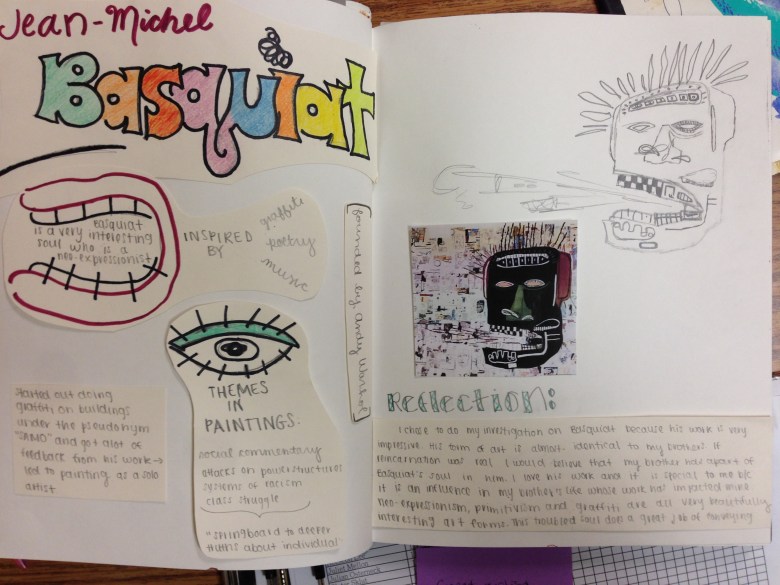 Jean-Michel
Basquiat
Basquiat
is a very interesting
soul who is a
neo-expressionist
INSPIRED
BY
graffiti
poetry
music
bounded by Andy Warhol
THEMES
IN
PAINTINGS.
social commentary
attacks on power structures
systems of racism
class struggle
"springboard to deeper
truths about individual"
started out doing
graffiti on buildings
under the pseudonym
"SAMO" and got alot of
feedback from his work →
led to painting as a solo
artist
Reflection:
I chose to do my investigation on Basquiat because his work is very
impressive. His form of art is almost identical to my brothers. If
reincarnation was real I would believe that my brother has apart of
Basquiat's soul in him. I love his work and it is special to me b/c
it is an influence in my brother's life whose work has impacted mine
neo-expressionism, primitivism and graffiti are all very beautifully
interesting art forms. This troubled soul did a great job of conveying